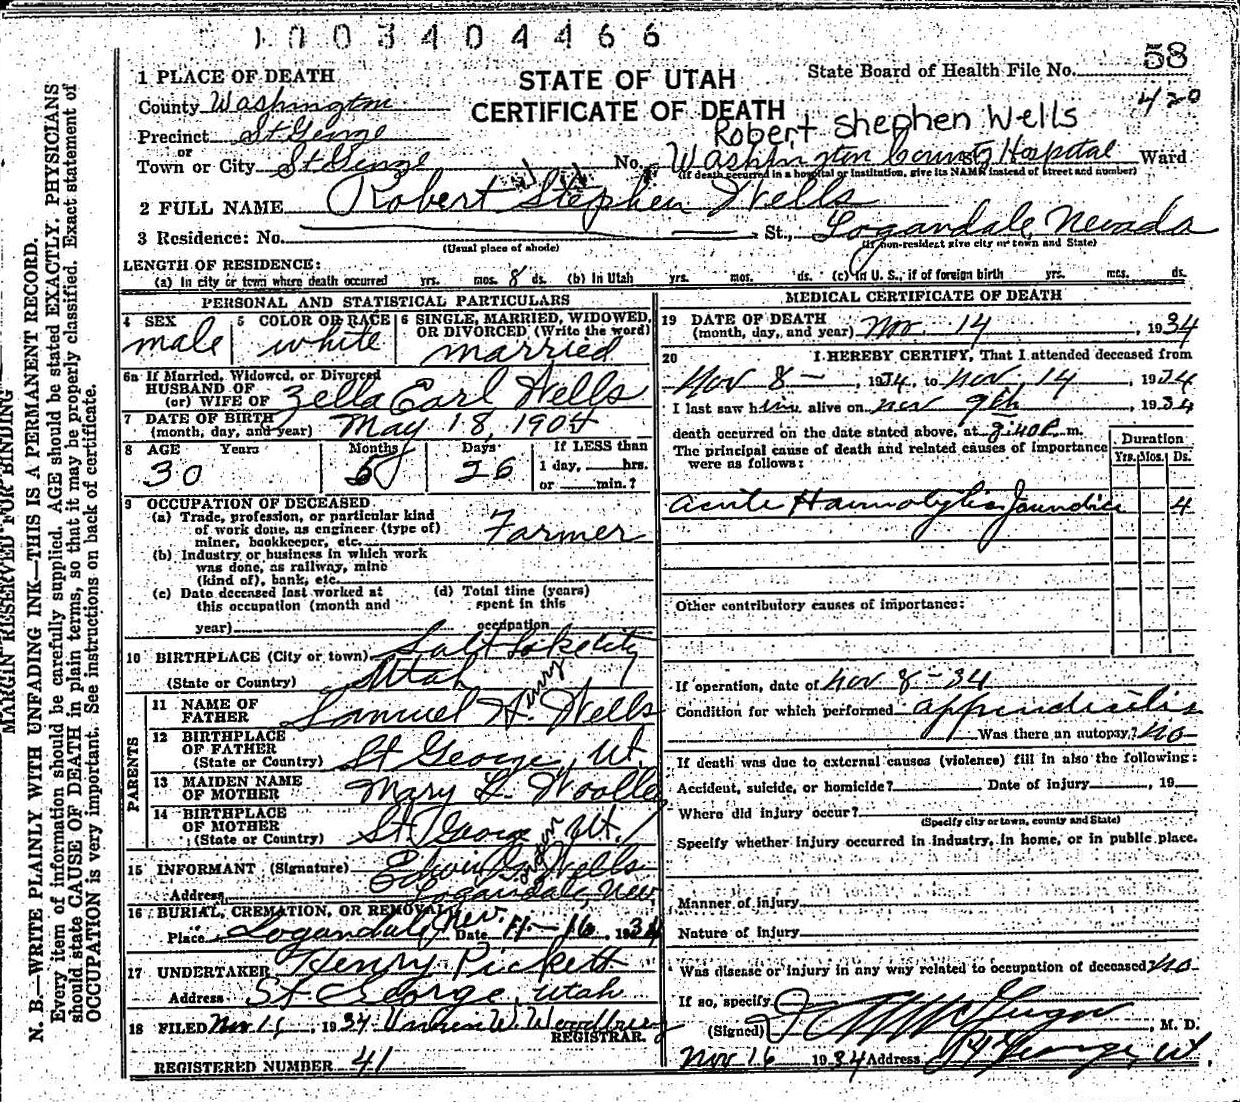 1003404466
58
STATE OF UTAH
CERTIFICATE OF DEATH
State Board of Health File No.
4/20
1 PLACE OF DEATH
County Washington
Precinct St George
or
Town or City St George No. Washington County Hospital Ward
Robert Stephen Wells
(If death occurred in a hospital or institution, give its NAME instead of street and number)
2 FULL NAME Robert Stephen Wells
3 Residence: No. St., Logandale, Nevada
(Usual place of abode) (If non-resident give city or town and State)
LENGTH OF RESIDENCE:
(a) In city or town where death occurred yrs. mos. 8 ds. (b) In Utah yrs. mos. ds. (c) In U. S., if of foreign birth yrs. mos. ds.
PERSONAL AND STATISTICAL PARTICULARS
4 SEX 5 COLOR OR RACE 6 SINGLE, MARRIED, WIDOWED,
OR DIVORCED (Write the word)
male white married
6a If Married, Widowed, or Divorced
HUSBAND OF
(or) WIFE OF Zella Earl Wells
7 DATE OF BIRTH
(month, day, and year) May 18, 1904
8 AGE Years Months Days If LESS than
30 5 26 1 day, hrs.
or min.?
9 OCCUPATION OF DECEASED
(a) Trade, profession, or particular kind
of work done, as engineer (type of)
miner, bookkeeper, etc. Farmer
(b) Industry or business in which work
was done, as railway, mine
(kind of), bank, etc.
(c) Date deceased last worked at (d) Total time (years)
this occupation (month and spent in this
year) occupation
10 BIRTHPLACE (City or town) Salt Lake City
(State or Country) Utah
11 NAME OF
FATHER Samuel H. Wells
Henry
12 BIRTHPLACE
OF FATHER
(State or Country) St George, Ut.
13 MAIDEN NAME
OF MOTHER Mary L. Woolley
14 BIRTHPLACE
OF MOTHER
(State or Country) St. George Ut.
PARENTS
15 INFORMANT (Signature) Edwin G. Wells
Address Logandale, Nev
16 BURIAL, CREMATION, OR REMOVAL
Place Logandale, Nev. Date 11-16, 1934
17 UNDERTAKER Henry Pickett
Address St George, Utah
18 FILED Nov 1934
REGISTRAR.
REGISTERED NUMBER 41
MEDICAL CERTIFICATE OF DEATH
19 DATE OF DEATH
(month, day, and year) Nov 14, 1934
20 I HEREBY CERTIFY, That I attended deceased from
Nov 8-, 1934, to Nov, 14, 1934
I last saw him alive on nov 9th, 1934
death occurred on the date stated above, at m.
The principal cause of death and related causes of importance
were as follows:
Duration
Yrs. Mos. Ds.
acute Jaundice 4
Other contributory causes of importance:
If operation, date of Nov 8-34
Condition for which performed appendicitis
Was there an autopsy? no
If death was due to external causes (violence) fill in also the following:
Accident, suicide, or homicide? Date of injury, 19
Where did injury occur?
(Specify city or town, county and State)
Specify whether injury occurred in industry, in home, or in public place.
Manner of injury
Nature of injury
Was disease or injury in any way related to occupation of deceased? no
If so, specify
(Signed) McGregor, M. D.
Nov 16 1934 Address St George, Ut.
MARGIN RESERVED FOR BINDING
N. B.—WRITE PLAINLY WITH UNFADING INK—THIS IS A PERMANENT RECORD.
Every item of information should be carefully supplied. AGE should be stated EXACTLY. PHYSICIANS
should state CAUSE OF DEATH in plain terms, so that it may be properly classified. Exact statement of
OCCUPATION is very important. See instructions on back of certificate.